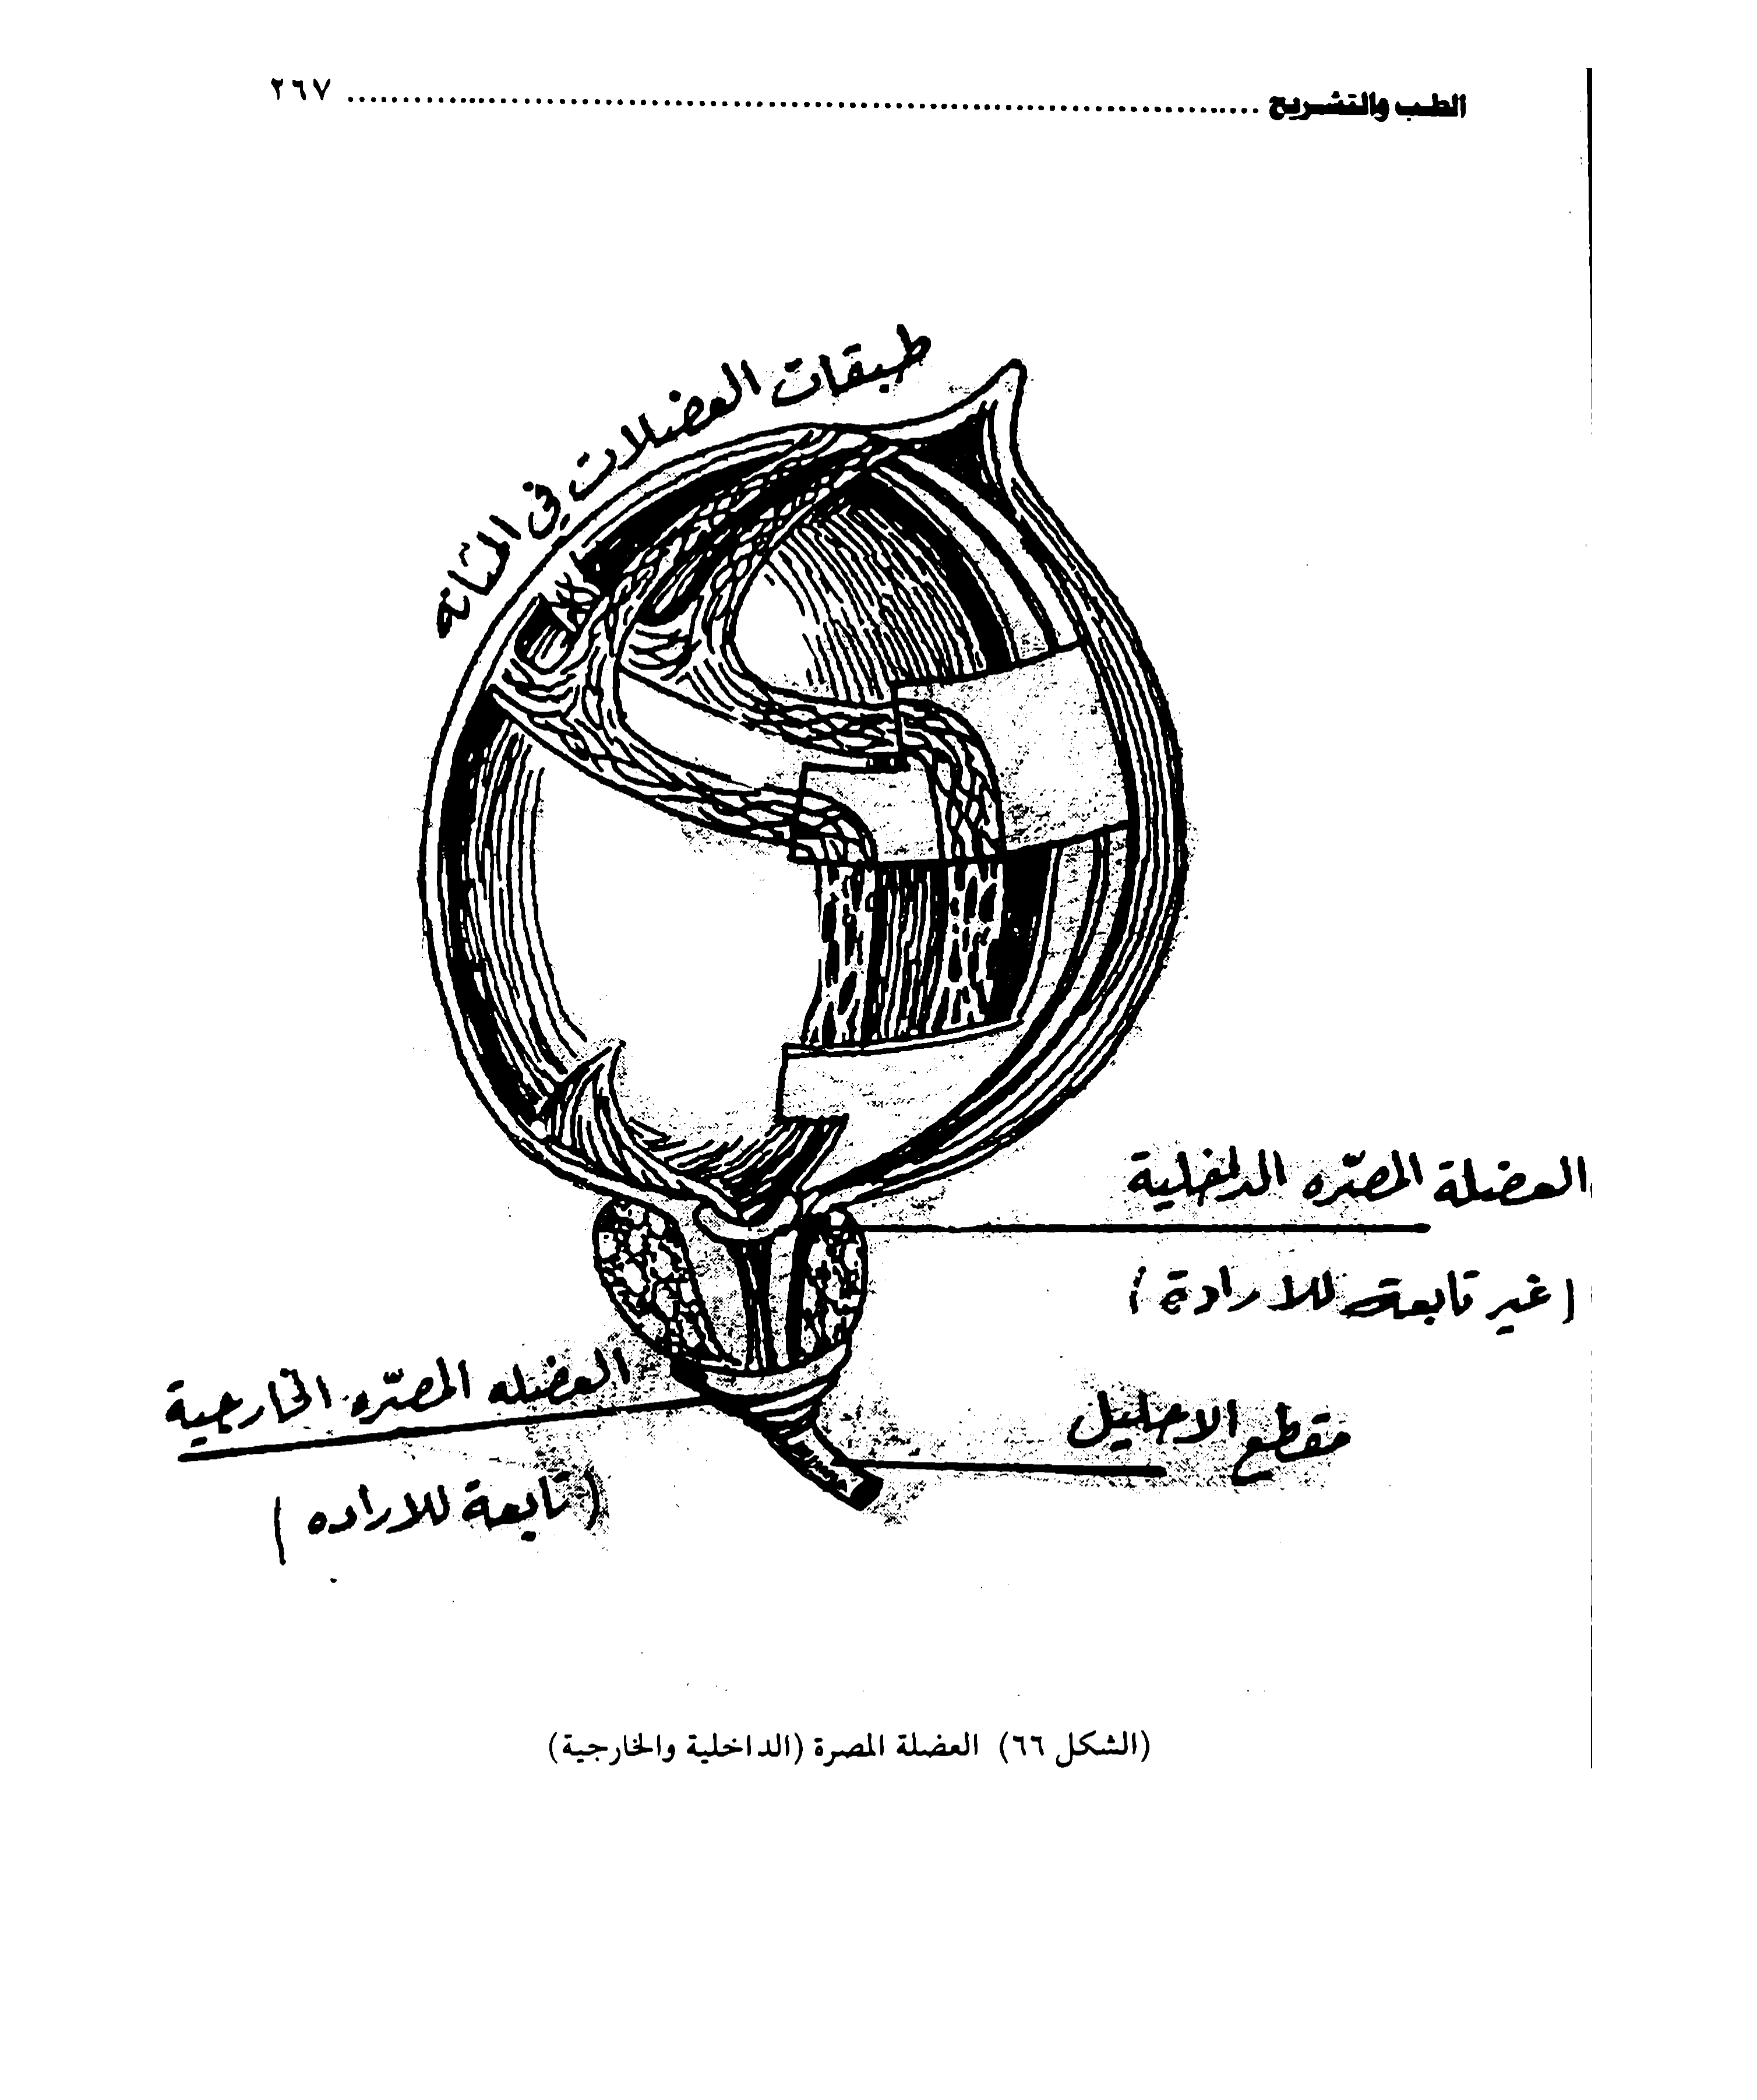 الطب والتشريح ........................ ٢٦٧
طبقات العضلات في المثانة
العضلة المصرّه الداخلية
(غير تابعة للارادة)
العضله المصرّه الخارجية
مقطع الاحليل
(تابعة للاراده)
(الشكل ٦٦) العضلة المصرة (الداخلية والخارجية)